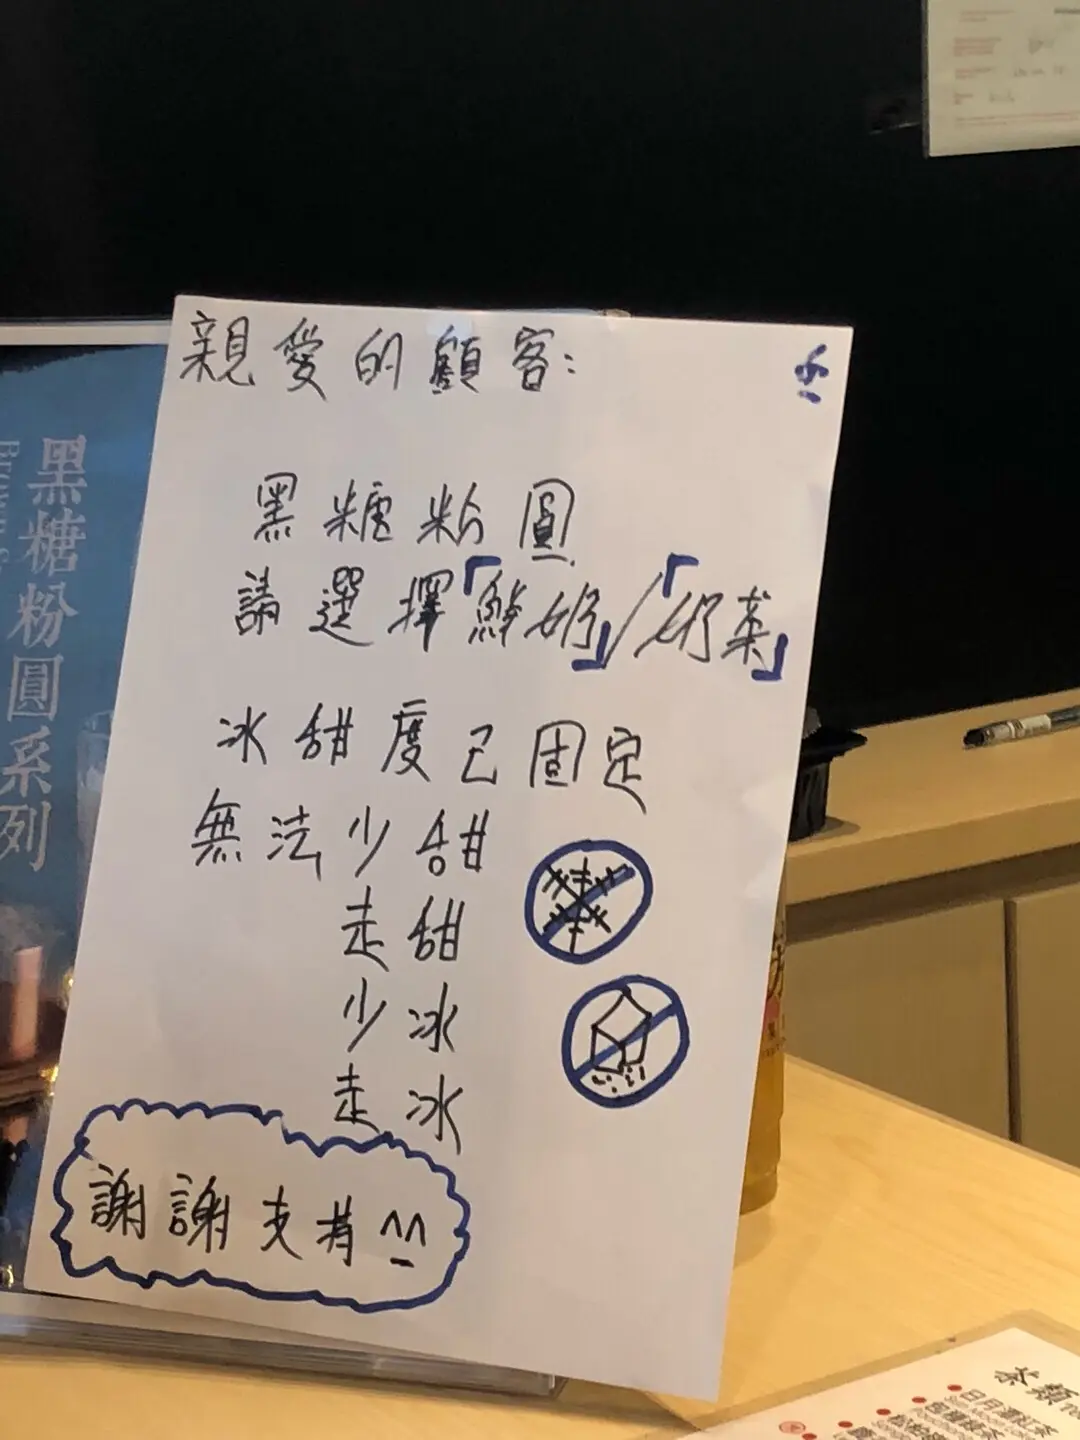 親愛的顧客:
黑糖粉圓
請選擇「鮮奶」/「奶茶」
冰甜度已固定
無法少甜
走甜
少冰
走冰
謝謝支持^_^
黑糖粉圓系列
茶類
日月潭紅茶